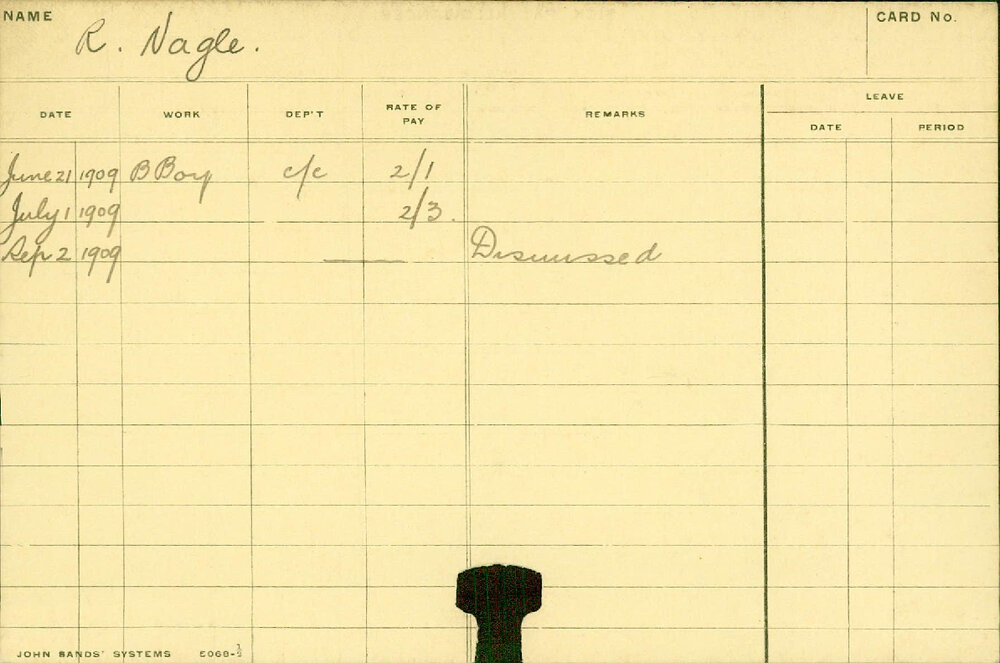 NAME
R. Nagle.
CARD No.
DATE WORK DEP'T RATE OF PAY REMARKS LEAVE
DATE PERIOD
June 21 1909 B Boy c/c 2/1
July 1 1909 2/3.
Sep 2 1909 — Dismissed
JOHN SANDS' SYSTEMS 5068-½